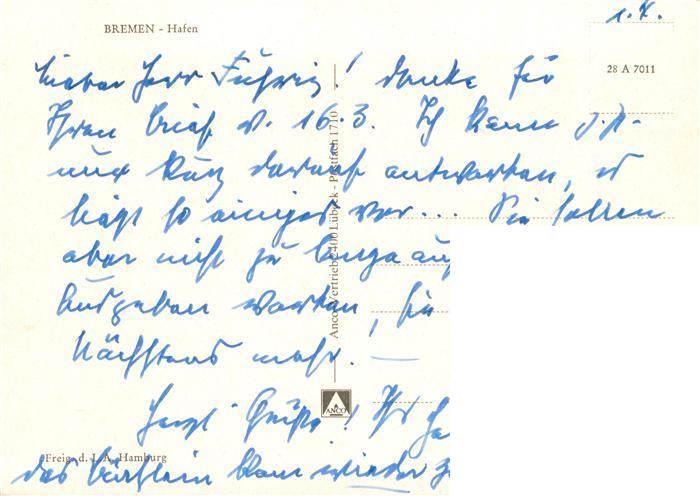 1. X.
BREMEN - Hafen
28 A 7011
Lieber Herr Fuhrig! danke für
Ihren Brief v. 16.3. Ich kann z.Zt.
nur kurz darauf antworten, es
liegt so einiges vor... Sie sollen
aber nicht zu lange auf
Ausgaben warten,
Nächstens mehr. —
Anco-Vertrieb 2400 Lübeck - Postfach 1710
ANCO
Herzl. Grüße! Ihr
Freig. d. L.A. Hamburg
das kam wieder